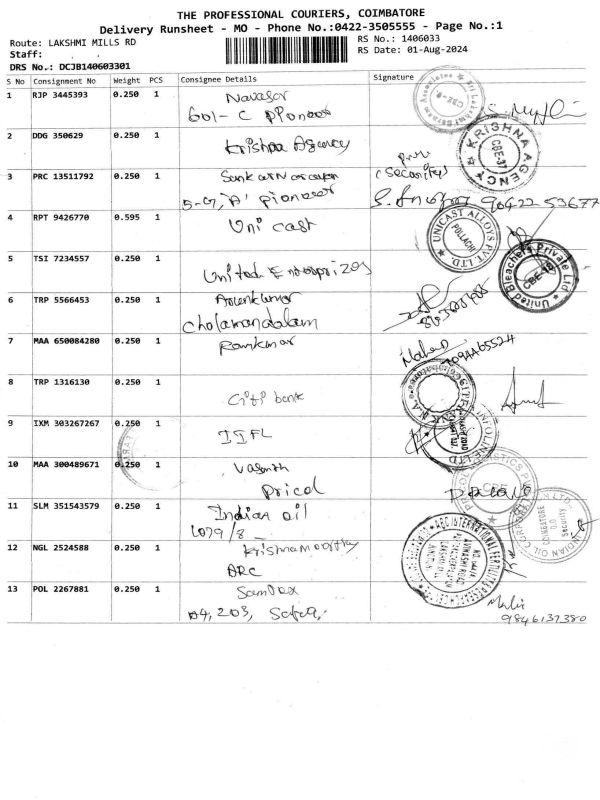 THE PROFESSIONAL COURIERS, COIMBATORE
Delivery Runsheet - MO - Phone No.:0422-3505555 - Page No.:1
Route: LAKSHMI MILLS RD
RS No.: 1406033
Staff:
RS Date: 01-Aug-2024
DRS No.: DCJB140603301
S No Consignment No Weight PCS Consignee Details Signature
1 RJP 3445393 0.250 1
601- C Pioneer
2 DDG 350629 0.250 1 Krishna Agency
KRISHNA AGENCY
CBE-37
3 PRC 13511792 0.250 1
(Security)
5-G, 'A' pioneer
90422 53677
4 RPT 9426770 0.595 1 Uni cast
UNICAST ALLOYS PVT LTD.
POLLACHI
5 TSI 7234557 0.250 1 United Enterprizes
United Bleachers Private Ltd
CBE-43
6 TRP 5566453 0.250 1 Arunkumar
Cholamandalam
7 MAA 650084280 0.250 1 Ramkumar
8 TRP 1316130 0.250 1 Citi bank
9 IXM 303267267 0.250 1 IIFL
10 MAA 300489671 0.250 1 Vasanth
Pricol
CBE
11 SLM 351543579 0.250 1 Indian oil
1079/8
INDIAN OIL
COIMBATORE
D.O
Security
12 NGL 2524588 0.250 1 Krishnamoorthy
ARC
13 POL 2267881 0.250 1
A4, 203,
9846137380